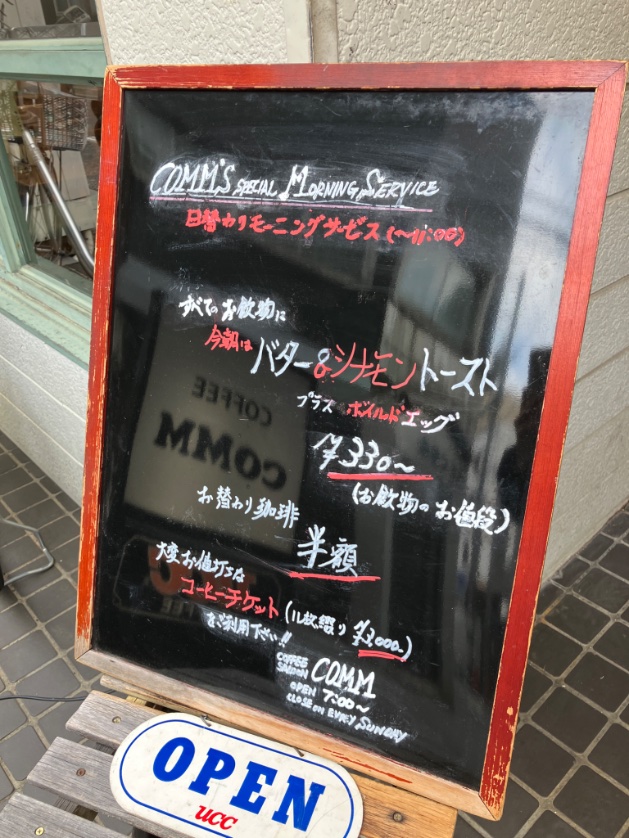 COMM'S SPECIAL MORNING SERVICE
日替わりモーニングサービス(〜11:00)
すべてのお飲物に
今朝は バター&シナモントースト
プラス ボイルドエッグ
¥330〜
(お飲物のお値段)
お替わり珈琲
半額
大変お値打ちな
コーヒーチケット(11枚綴り ¥3,000〜)
をご利用下さい!!
COFFEE SALOON COMM
OPEN 7:00〜
CLOSE ON EVERY SUNDAY
COFFEE
COMM
OPEN
ucc